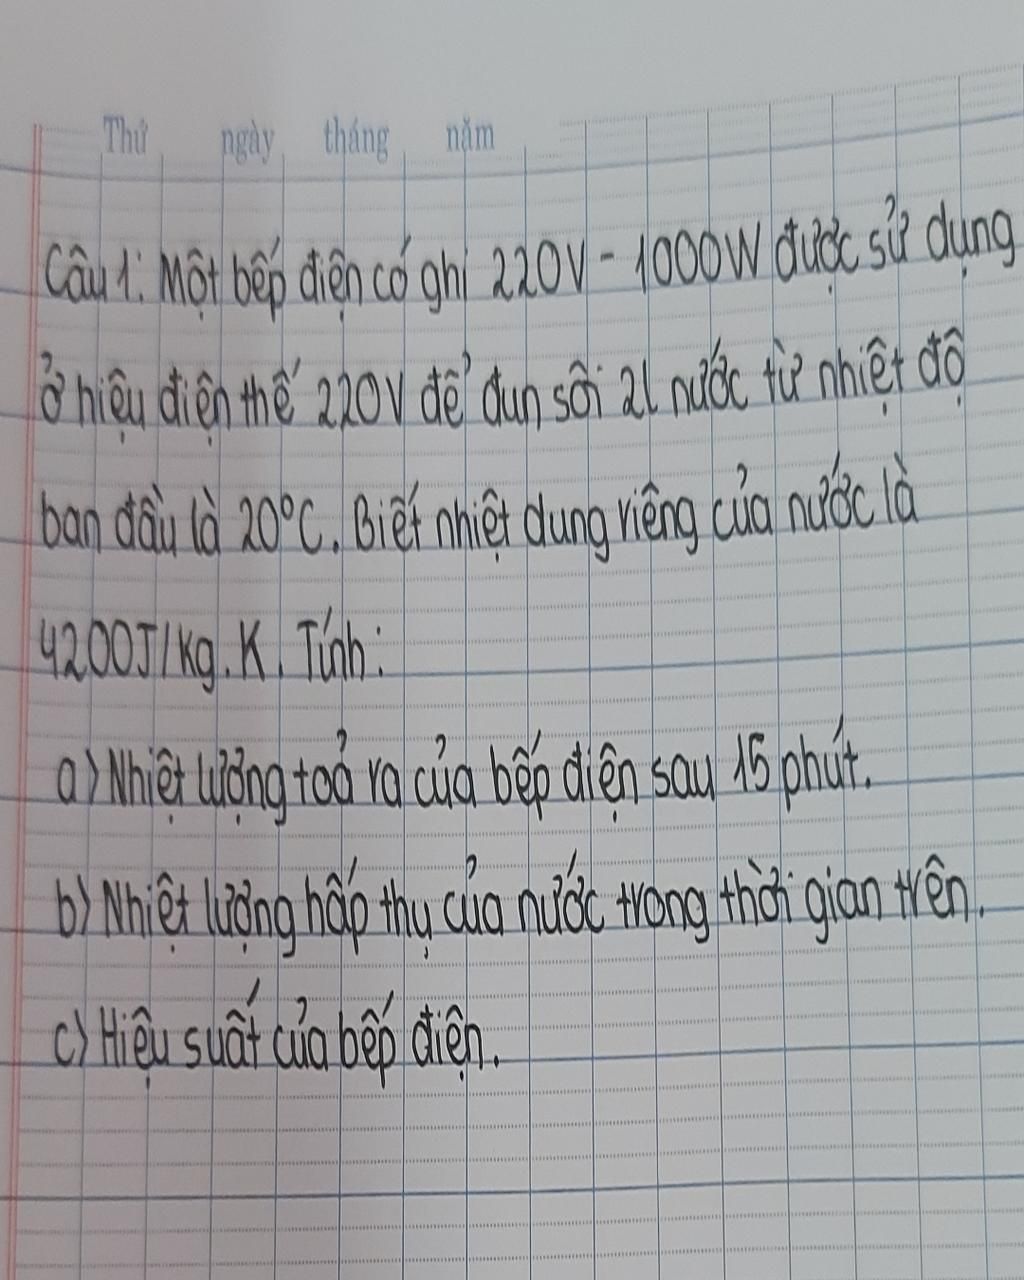 Thứ ngày tháng năm
Câu 1: Một bếp điện có ghi 220V - 1000W được sử dụng
ở hiệu điện thế 220V để đun sôi 2l nước từ nhiệt độ
ban đầu là 20°C. Biết nhiệt dung riêng của nước là
4200J/kg.K. Tính:
a) Nhiệt lượng toả ra của bếp điện sau 15 phút.
b) Nhiệt lượng hấp thụ của nước trong thời gian trên.
c) Hiệu suất của bếp điện.